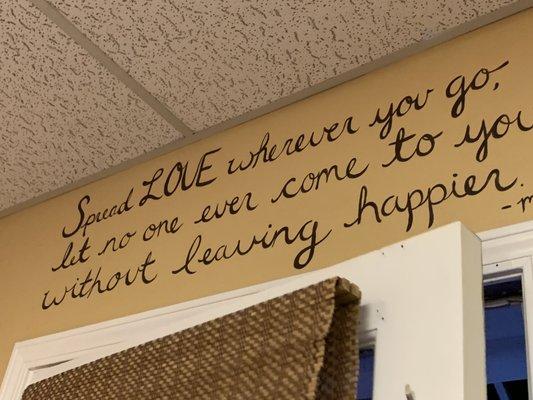 Spread LOVE wherever you go,
let no one ever come to you
without leaving happier.